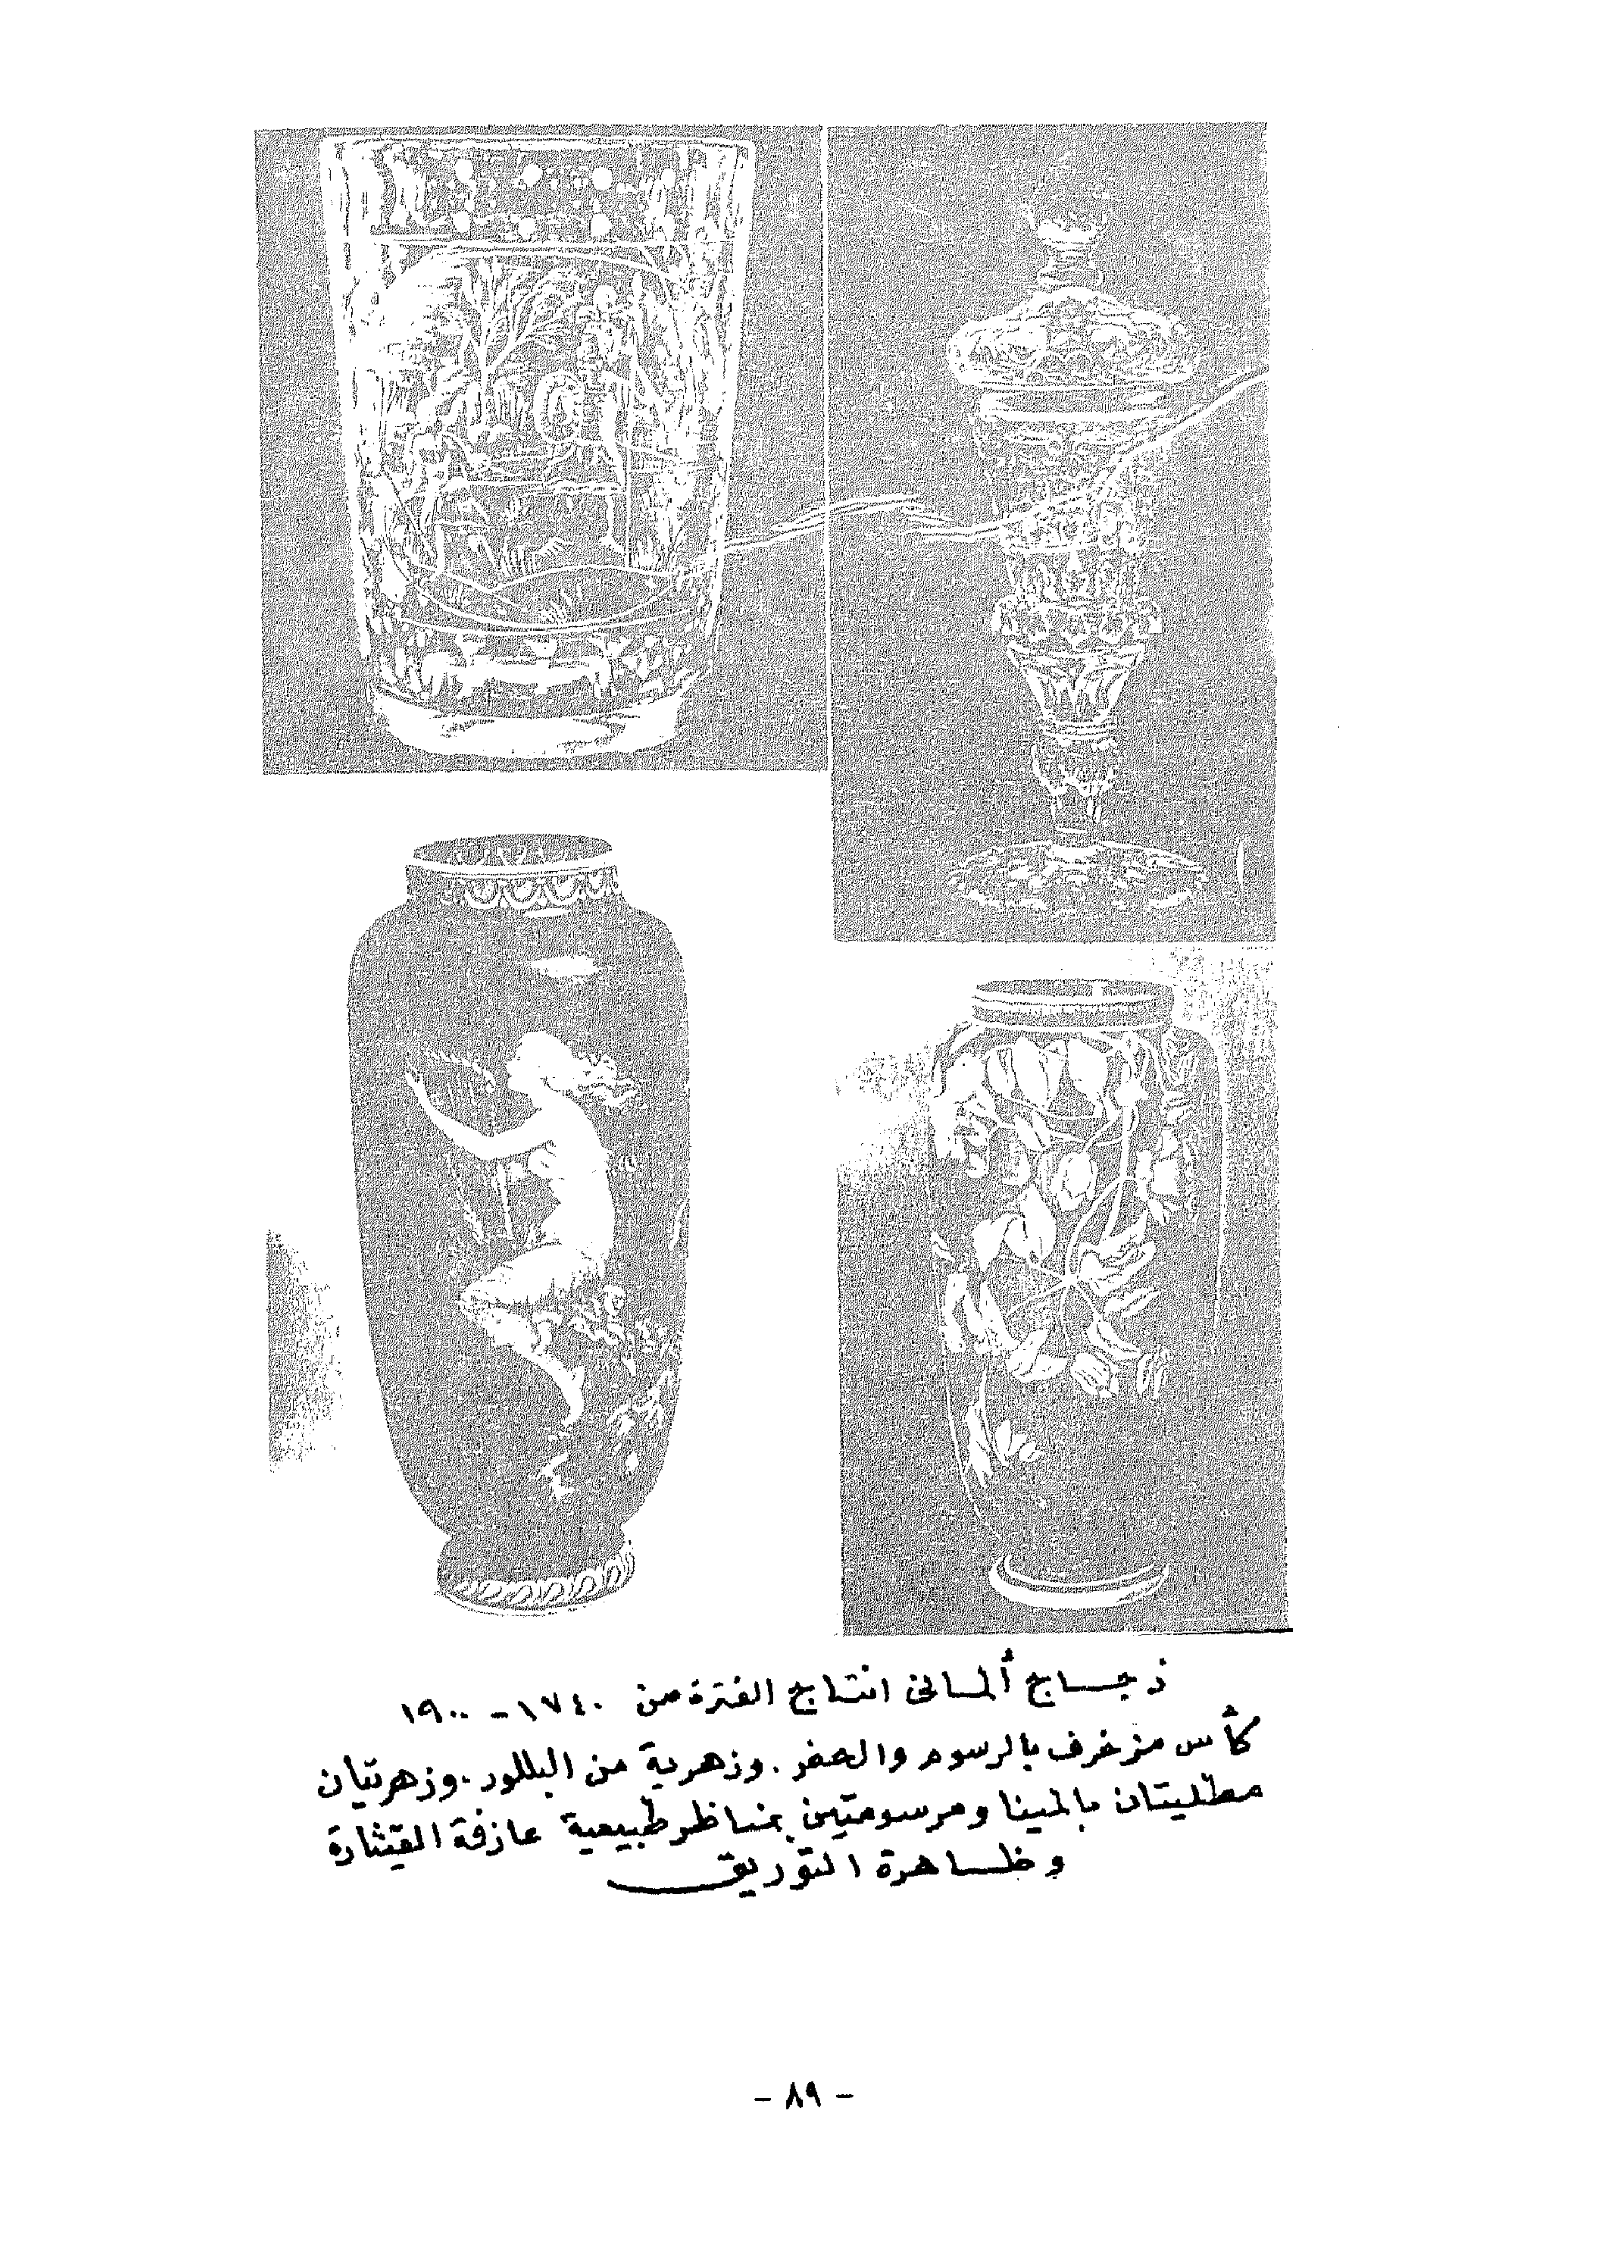 زجاج ألمانى انتاج الفترة من ١٧٤٠ - ١٩٠٠
كأس مزخرف بالرسوم والحفر . وزهرية من البللور . وزهرتيان
مطليتان بالمينا ومرسومتين بمناظر طبيعية عازفة القيثارة
وظاهرة التوريق
- ٨٩ -